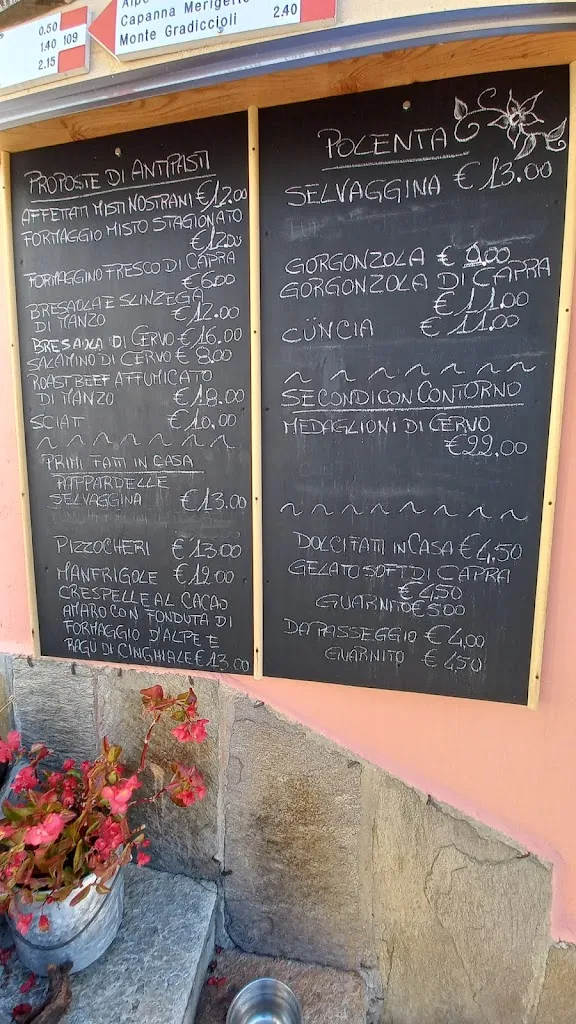 0.50
1.40 109
2.15
Capanna Merigetto
Monte Gradiccioli 2.40
PROPOSTE DI ANTIPASTI
AFFETTATI MISTI NOSTRANI € 12.00
FORMAGGIO MISTO STAGIONATO
€ 12.00
FORMAGGINO FRESCO DI CAPRA
€ 6.00
BRESAOLA E SLINZEGA
DI MANZO € 12.00
BRESAOLA DI CERVO € 16.00
SALAMINO DI CERVO € 8,00
ROAST BEEF AFFUMICATO
DI MANZO € 18.00
SCIATT € 10,00
PRIMI FATTI IN CASA
PAPPARDELLE
SELVAGGINA € 13.00
PIZZOCHERI € 13.00
MANFRIGOLE € 12.00
CRESPELLE AL CACAO
AMARO CON FONDUTA DI
FORMAGGIO D'ALPE E
RAGÙ DI CINGHIALE € 13.00
POLENTA
SELVAGGINA € 13.00
GORGONZOLA €
GORGONZOLA DI CAPRA
€ 11.00
CÜNCIA € 11.00
SECONDI CON CONTORNO
MEDAGLIONI DI CERVO
€ 22,00
DOLCI FATTI IN CASA € 4,50
GELATO SOFT DI CAPRA
€ 4,50
GUARNITO € 5.00
DA PASSEGGIO € 4,00
GUARNITO € 4,50